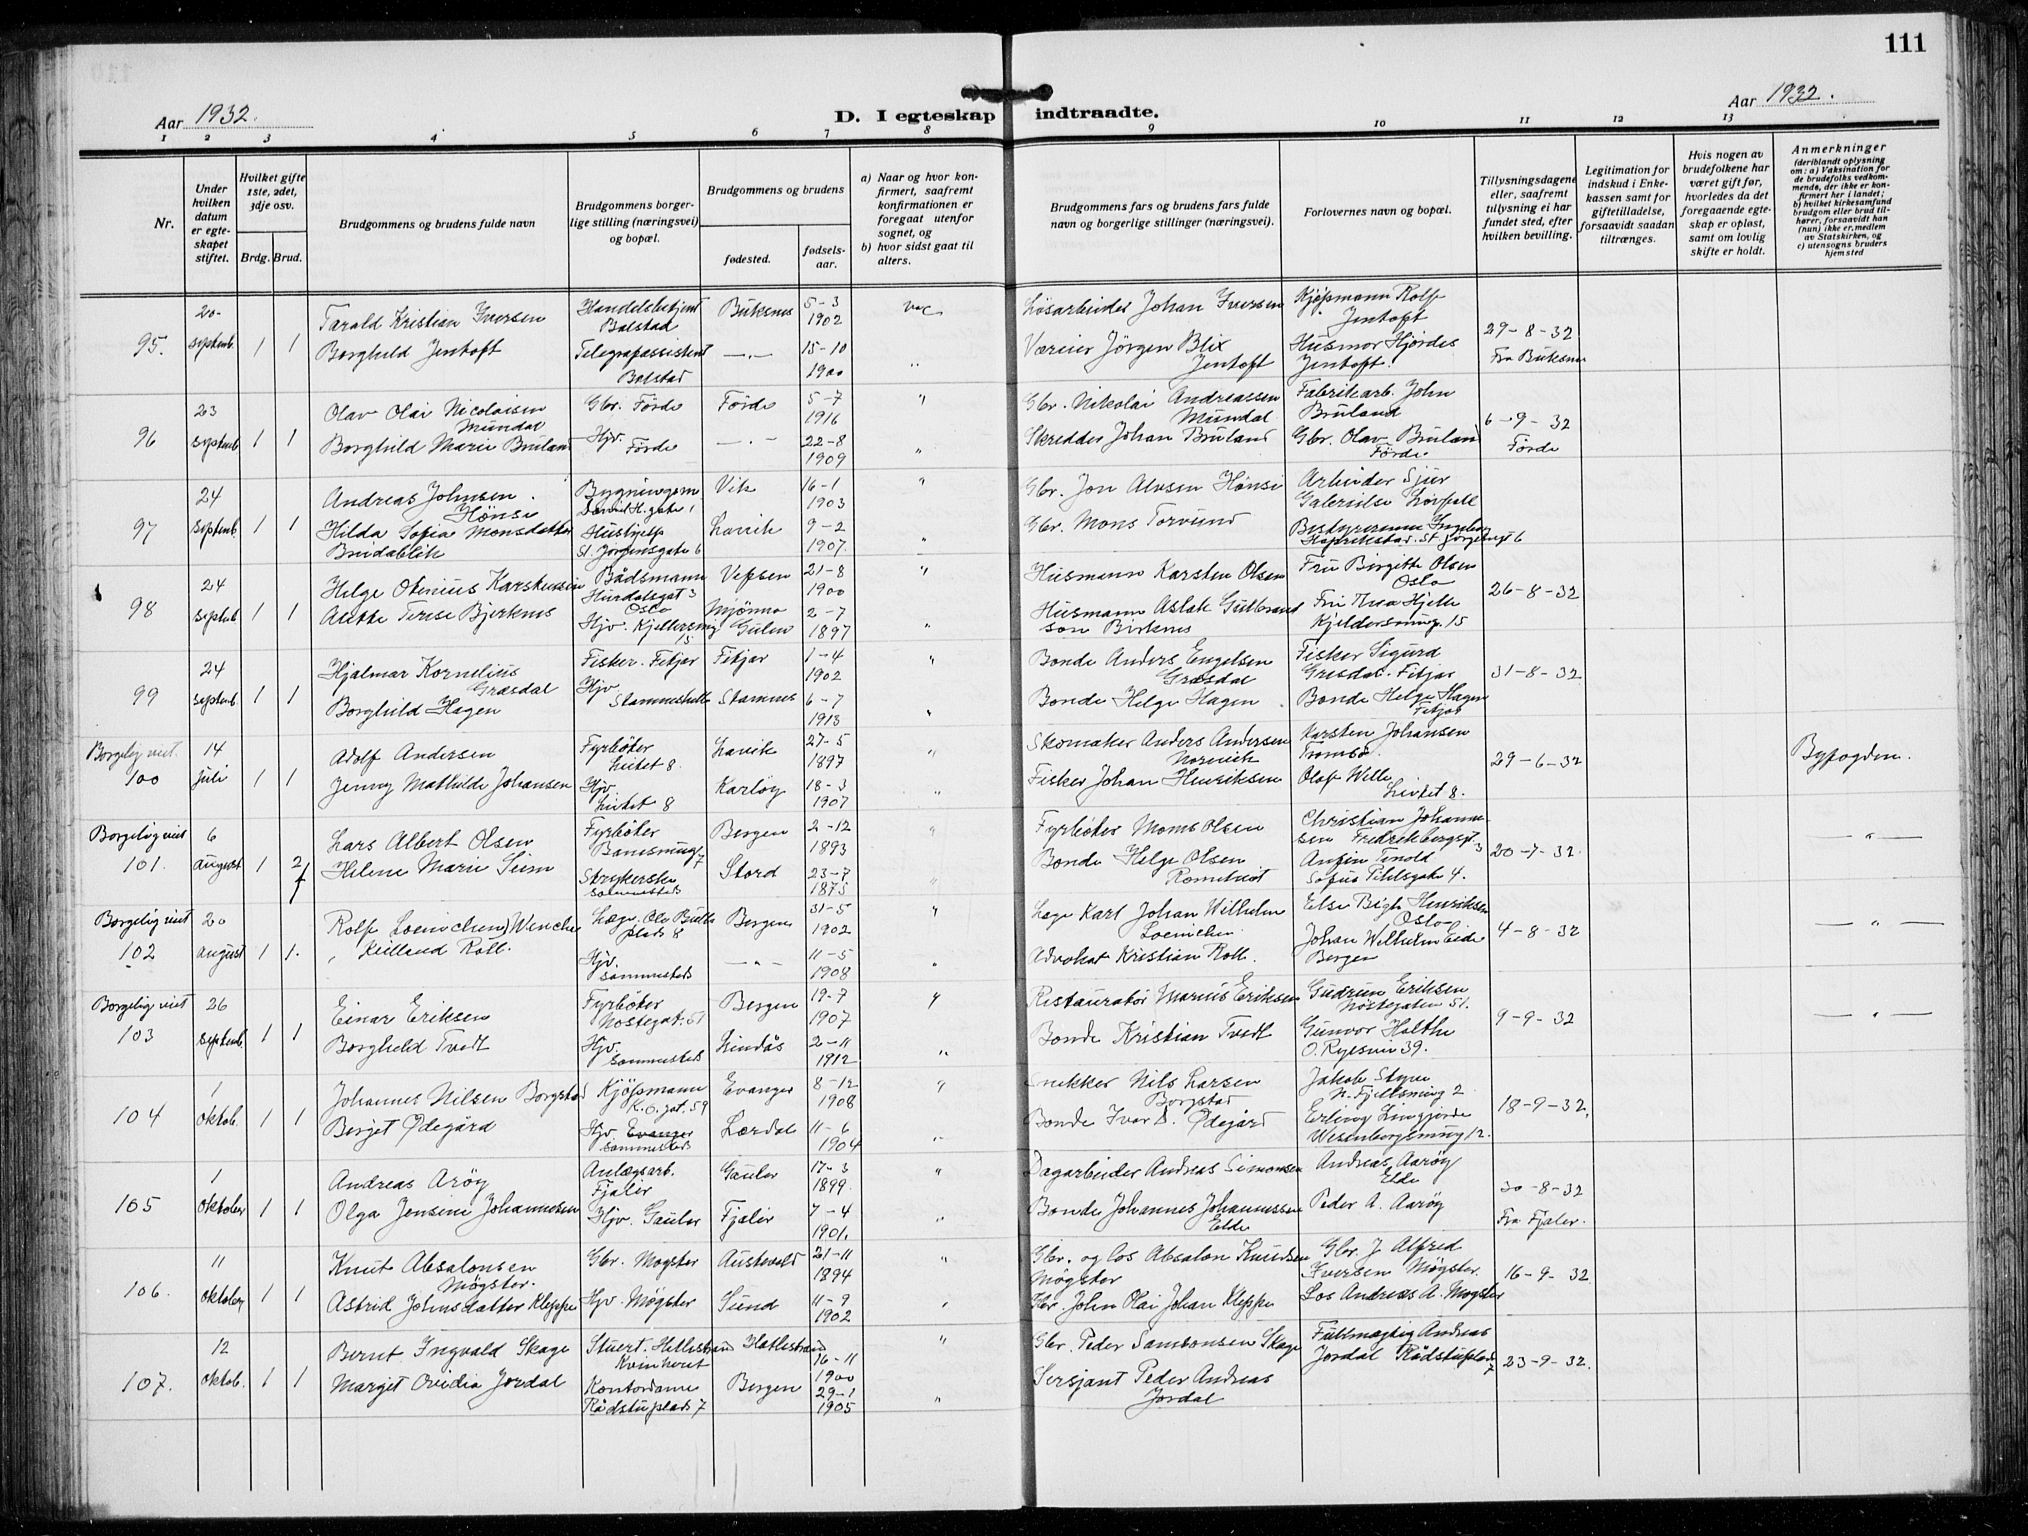 111
Aar 1932.
D. I egteskap indtraadte.
Aar 1932.
1 2 3 4 5 6 7 8 9 10 11 12 13
Nr.
Under hvilken datum er egteskapet stiftet.
Hvilket gifte 1ste, 2det, 3dje osv.
Brdg. Brud.
Brudgommens og brudens fulde navn
Brudgommens borgerlige stilling (næringsvei) og bopæl.
Brudgommens og brudens
fødested.
fødselsaar.
a) Naar og hvor konfirmert, saafremt konfirmationen er foregaat utenfor sognet, og
b) hvor sidst gaat til alters.
Brudgommens fars og brudens fars fulde navn og borgerlige stillinger (næringsvei).
Forlovernes navn og bopæl.
Tillysningsdagene eller, saafremt tillysning ei har fundet sted, efter hvilken bevilling.
Legitimation for indskud i Enkekassen samt for giftetilladelse, forsaavidt saadan tiltrænges.
Hvis nogen av brudefolkene har været gift før, hvorledes da det foregaaende egteskap er opløst, samt om lovlig skifte er holdt.
Anmerkninger
(deriblandt oplysning om: a) Vaksination for de brudefolks vedkommende, der ikke er konfirmert her i landet; b) hvilket kirkesamfund brudgom eller brud tilhører, forsaavidt han (hun) ikke er medlem av Statskirken, og c) utensogns bruders hjemsted
95. 20 septemb. 1 1
Tarald Kristian Iversen
Handelsbetjent Balstad
Buksnes 5-3 1902
Løsarbeider Johan Iversen
Kjøpmann Rolf Jentoft
Borghild Jentoft
Telegrafassistent Balstad
—.— 15-10 1900 "
Væreier Jørgen Blix Jentoft
Husmor Hjørdes Jentoft.
29-8-32 Fra Buksnes
96 23 septemb 1 1
Olav Olai Nicolaisen Mundal
Gbr. Førde
Førde 5-7 1916 "
Gbr. Nikolai Andreassen Mundal
Fabrikarb. John Bruland
Borghild Marie Bruland
Hjv. Førde
—.— 22-8 1909 "
Skredder Johan Bruland
Gbr. Olav Bruland Førde
6-9-32 Førde
97 24 septemb. 1 1
Andreas Johnsen Hønsi
Vik 16-1 1903 "
Gbr. Jon Hønsi
Arbeider Sjur
Hilda Sofia Monsdatter Breidablik
Hushjelp St. Jørgensgate 6
Lavik 9-2 1907. "
Gbr. Mons Torvund
98 24 septemb 1 1
Helge Otenius Karstensen
Bådsmann Hurdalsgt 3 Oslo
Vefsen 21-8 1900 "
Husmann Karsten Olsen
Fru Birgitte Olsen Oslo
Bjerknes
Hjv. Kjellersmug 15
Mjømna Gulen 2-7 1897 "
Husmann Aslak Gulbrandson Birknes
Fru Thea Hjelle Kjeldersmug. 15
26-8-32
99 24 septemb. 1 1
Hjalmar Kornelius Græsdal
Fisker. Fitjar
Fitjar 1-4 1902 "
Bonde Anders Engelsen Græsdal
Fisker Sigurd Gresdal. Fitjar
Borghild Hagen
Hjv Stamneshella
Stamnes 6-7 1913 "
Bonde Helge Hagen
Bonde Helge Hagen Fitjar
31-8-32
Borgelig viet. 100 14 juli 1 1
Adolf Andersen
Fyrbøter 8
Lavik 27-5 1897 "
Skomaker Anders Andersen
Karsten Johansen Tromsø.
Jenny Mathilde Johansen
Hjv. 8
Karlsøy 18-3 1907 "
Fisker Johan Henriksen
Olaf Wille 8.
29-6-32
Byfogden.
Borgelig viet 101. 6 august 1 2
Lars Albert Olsen
Fyrbøter 7
Bergen 2-12 1893 "
Fyrbøter Mons Olsen
Christian Johannesen Fredriksbergsgt. 3
Helene Marie Seim
Strykerske sammested
Stord 23-7 1875 "
Bonde Helge Olsen
Anfin Tenold Sofus 4.
20-7-32.
—"—
Borgelig viet 102 20 august 1 1.
Rolf Loenichen, Wenche Keilland Roll.
Læge. Ole Bulls plads 8
Bergen 31-5 1902 "
Læge Karl Johan Wilhelm Loenichen
Else Henriksen Oslo
Hjv. sammested
—"— 11-5 1908 "
Advokat Kristian Roll.
Johan Wilhelm Eide Bergen
4-8-32
—"—
Borgelig viet 103 26 septemb. 1 1
Einar Eriksen
Fyrbøter Nøstegat. 51
Bergen 19-7 1907 "
Restauratør Marius Eriksen
Gudrun Eriksen Nøstegaten 51.
Borghild Tvedt
Hjv. sammested
Lindås 2-11 1912 "
Bonde Kristian Tvedt
Gunvor Holthe O. Ryesvei 39.
9-9-32
—"—
104 1 oktob. 1 1
Johannes Nilsen Borgstad
Kjøpmann K.O. gt. 59
Evanger 8-12 1908 "
Snekker Nils Larsen Borgstad
Jakob Styve N. Fjeldsmug 2
Berget Ødegård
Hjv. Evanger sammested
Lærdal 11-6 1904 "
Bonde Ivar D. Ødegård
Erling Wesenbergsmug 12.
18-9-32,
105 1 oktober 1 1
Andreas Arøy
Anlægsarb. Fjaler
Gaular 17-3 1899. "
Dagarbeider Andreas Simonsen
Andreas Aarøy Elde
Olga Jensine Johannesen
Hjv. Gaular
Fjaler 7-4 1901. "
Bonde Johannes Johannessen Elde
Peder A. Aarøy
30-8-32 Fra Fjaler.
106. 11 oktober 1 1
Knut Absalonsen Møgster.
Gbr. Møgster
Austevold 21-11 1894 "
Gbr. og los Absalon Knudsen Møgster
Gbr. J Alfred Iversen Møgster.
Astrid Johnsdatter Kleppe
Hjv. Møgster
Sund 11-9 1902
Gbr. John Olai Johan Kleppe
Los Andreas A. Møgster
16-9-32
107. 12 oktob. 1 1
Bernt Ingvald Skage
Stuert. Hatlestrand Kvinherad
Hatlestrand 16-11 1900 "
Gbr. Peder Samsonsen Skage
Fullmægtig Andreas Jordal Rådstuplads 7
Marget Ovidia Jordal
Kontordame Rådstuplads 7
Bergen 29-1 1905 "
Sersjant Peder Andreas Jordal
23-9-32.